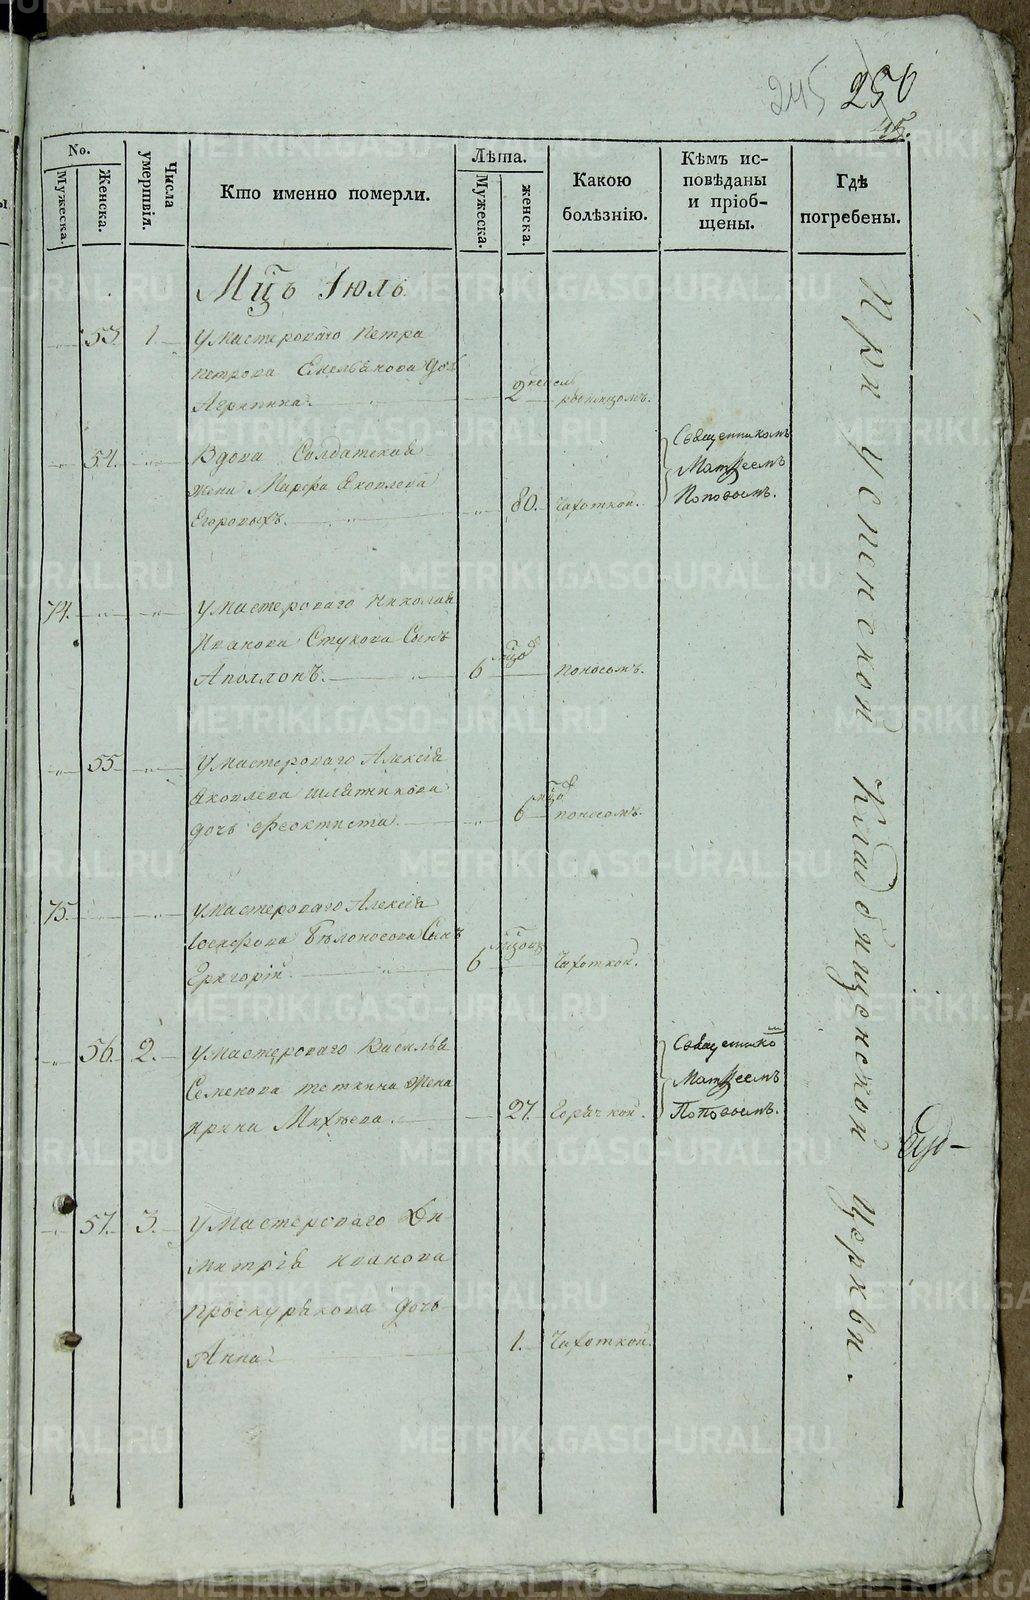 245 250
No.
Мужеска.
Женска.
Числа умертвія.
Кто именно померли.
Лѣта.
Мужеска.
женска.
Какою
болѣзнію.
Кѣмъ ис-
повѣданы
и пріоб-
щены.
Гдѣ
погребены.
Мцъ Іюль
53. 1. У мастероваго Петра
Петрова Емельянова доч
Агрипина. 2 недель родимцомъ.
54. Вдова Солдатская
жена Марфа Яковлева
Егоровыхъ. 80. Чахоткой.
Священникомъ
Матѳеемъ
Поповымъ.
74. У мастероваго Николая
Иванова Стукова Сынъ
Аполлонъ. 6 мцов Поносомъ.
55 У мастероваго Алексія
Яковлева Шлятникова
дочь Феоктиста. 6 мцов поносомъ.
75. У мастероваго Алексія
Іосифова Бѣлоносова Сынъ
Григорій. 6 мцовъ Чахоткой.
56. 2. У мастероваго Василья
Семенова Теткина Жена
Ирина Михѣева. 27. Горячкой.
Священнико
Матѳеемъ
Поповымъ.
57. 3. У Мастероваго Ди
митрія Иванова
Проскурякова дочь
Анна. 1. Чахоткой.
При Успенской Кладбищенской Церкви.
METRIKI.GASO-URAL.RU